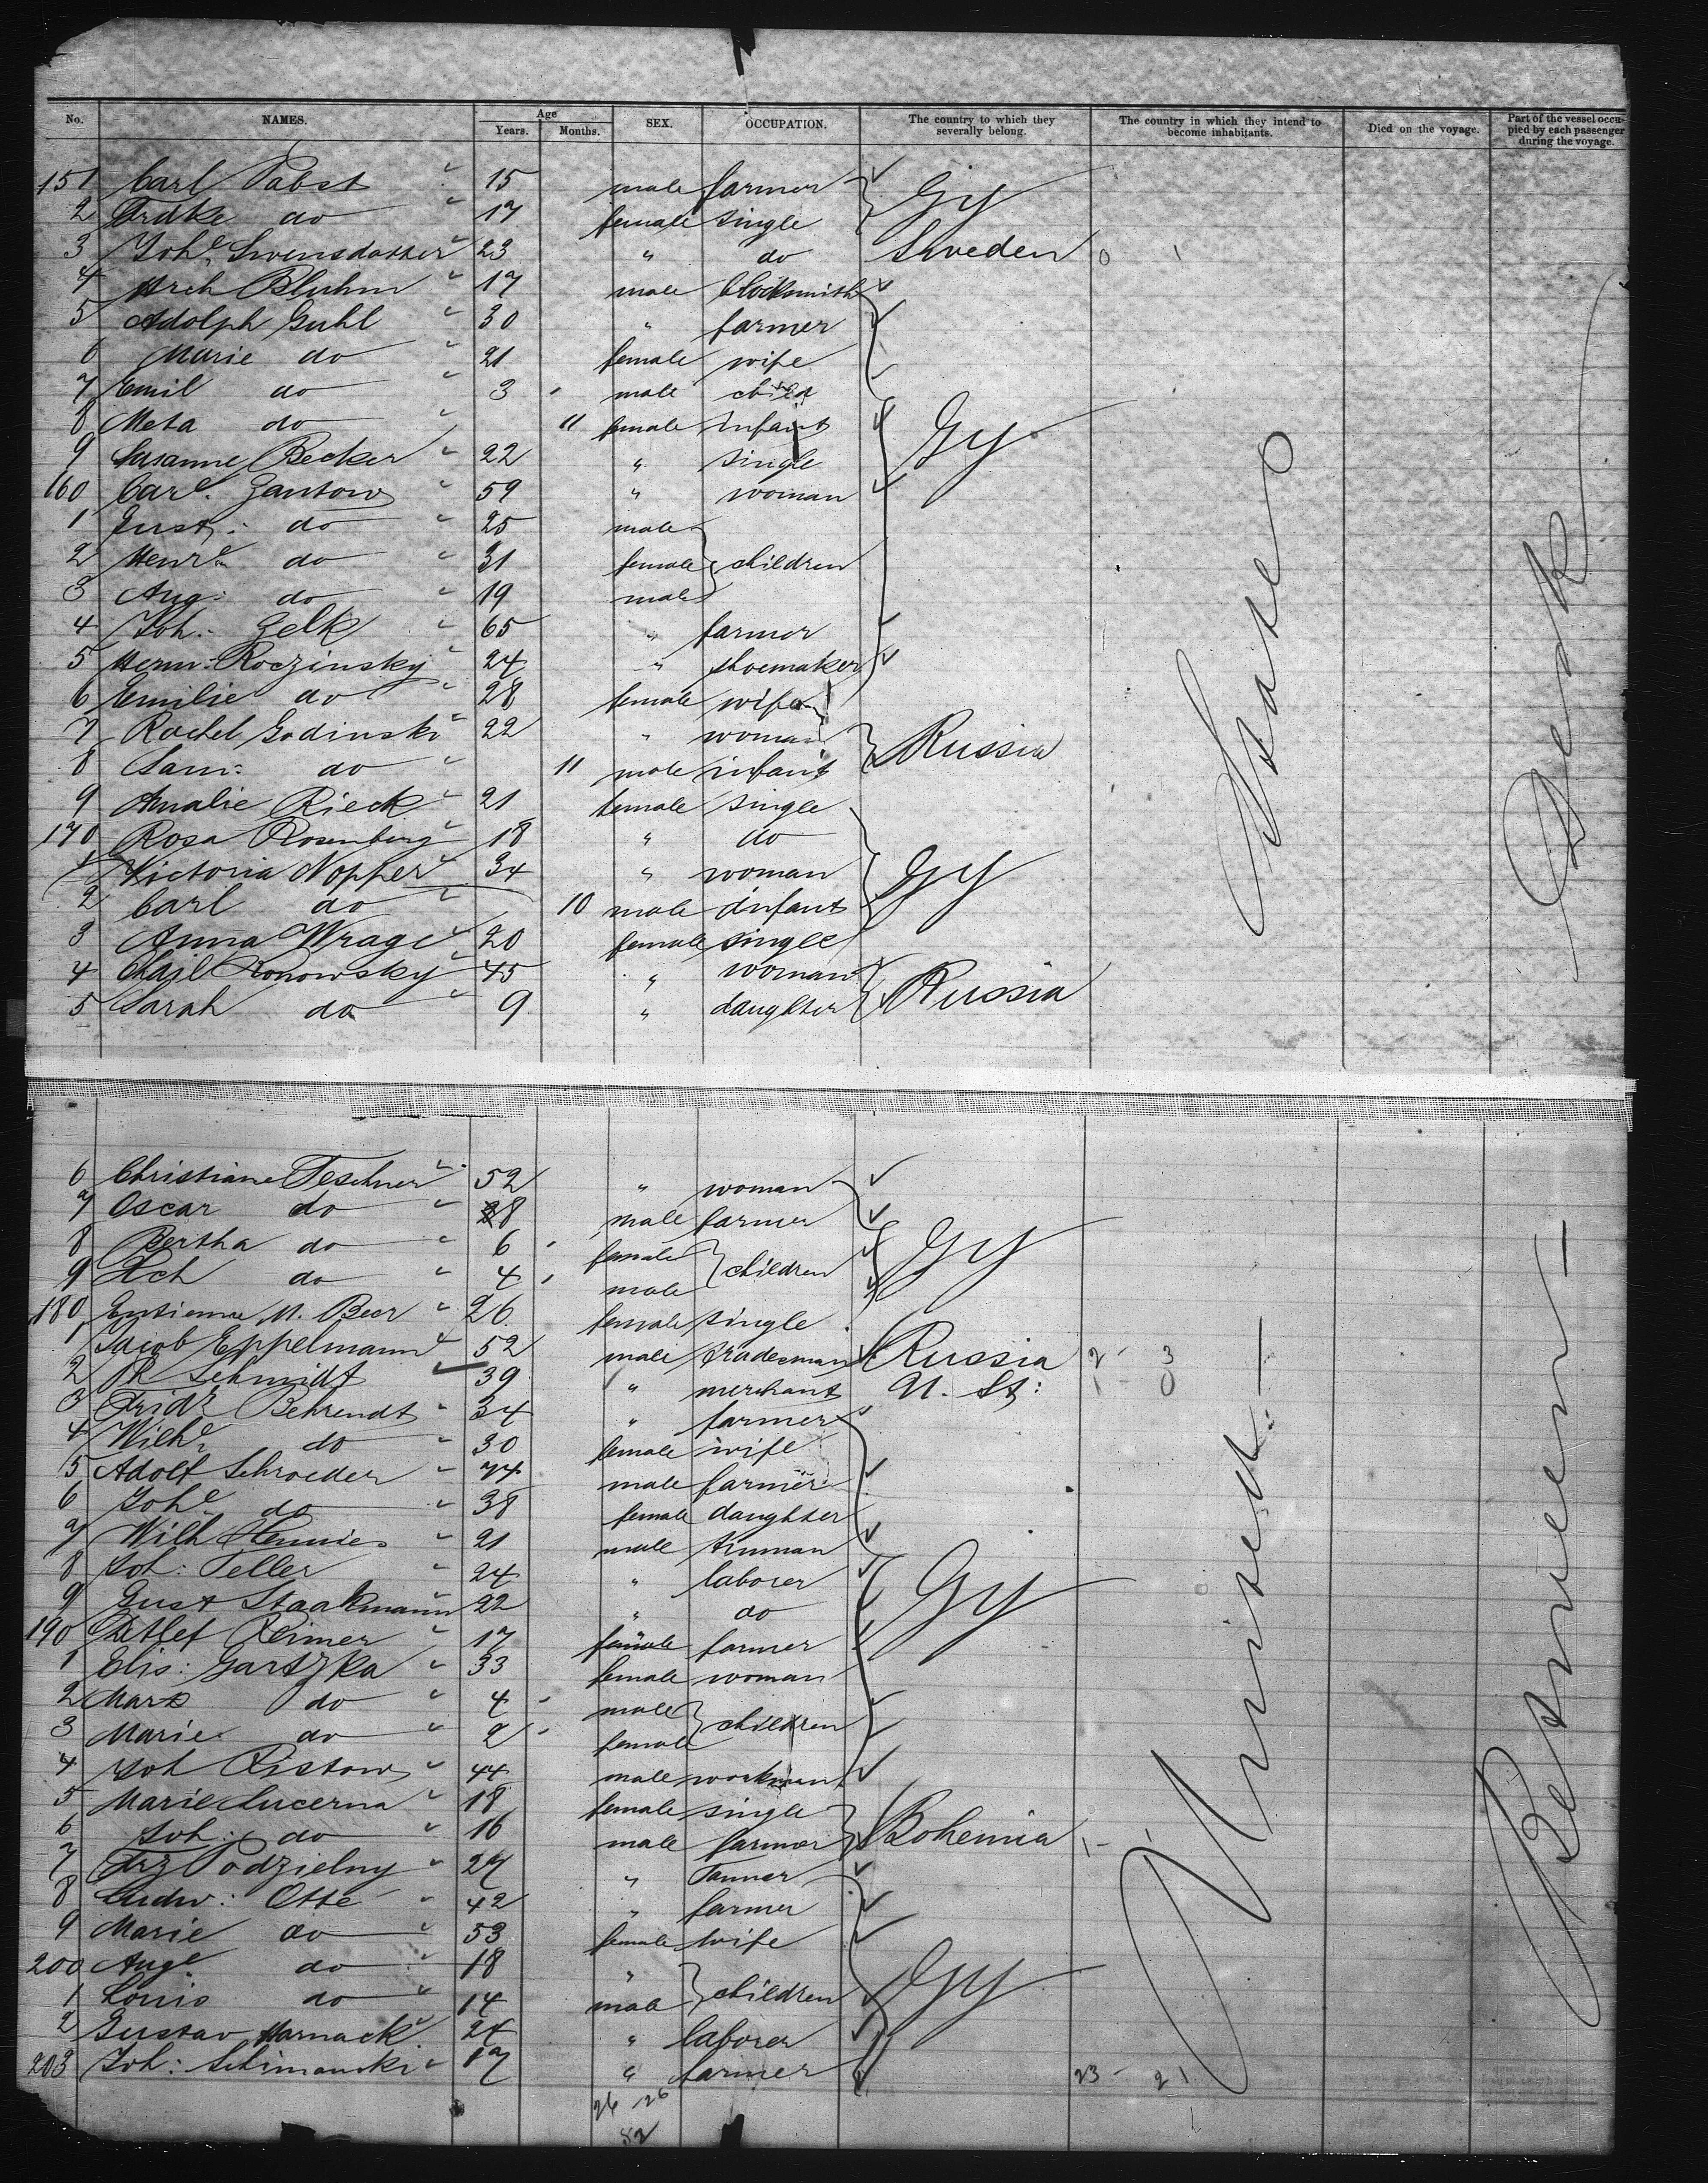 No. NAMES. Age Years. Months. SEX. OCCUPATION. The country to which they severally belong. The country in which they intend to become inhabitants. Died on the voyage. Part of the vessel occupied by each passenger during the voyage.
151 Carl Pabst 15 male farmer
2 Frdke do 17 female single Gy
3 Johe Swensdotter 23 " do Sweden 0 1
4 Hrch Bluhm 17 male blacksmith
5 Adolph Guhl 30 " farmer
6 Marie do 21 female wife
7 Emil do 3 male child
8 Meta do 11 female infant Gy
9 Susanne Becker 22 " single
160 Care. Gantow 59 " woman
1 Gust: do 25 male
2 Henre do 31 female children
3 Aug: do 19 male
4 Joh: Gelk 65 " farmer
5 Herm: Roczinsky 24 " shoemaker
6 Emilie do 28 female wife
7 Rachel Godinski 22 " woman Russia
8 Sam: do 11 male infant
9 Amalie Rieck 21 female single
170 Rosa Rosenberg 18 " do
1 Victoria Nopper 34 " woman Gy
2 Carl do 10 male infant
3 Anna Wrage 20 female single
4 Ronowsky 45 " woman Russia
5 Sarah do 9 " daughter
6 Christiane Teschner 52 " woman
7 Oscar do 8 male farmer
8 Bertha do 6 female children Gy
9 Hch do 4 male
180 M. Beer 26 female single
1 Jacob Eppelmann 52 male tradesman Russia 2 - 3
2 Ph Schmidt 39 " merchant U. St: 1 - 0
3 Fridr Behrendt 34 " farmer
4 Wilhe do 30 female wife
5 Adolf Schroeder 74 male farmer
6 Johe do 38 female daughter
7 Wilh Hennies 21 male tinman
8 Joh: Teller 24 " laborer Gy
9 Gust Staakmann 22 " do
190 Detlef Reimer 17 female farmer
1 Elis: Gartzka 33 female woman
2 Mart do 4 male children
3 Marie do 2 female
4 Joh Ristow 44 male workman
5 Marie Lucerna 18 female single Bohemia 1 -
6 Joh: do 16 male farmer
7 Frz Podzielny 27 " Tanner
8 Ludw: Otte 42 " farmer
9 Marie do 53 female wife
200 Auge do 18 " children Gy
1 Louis do 14 male
2 Gustav Harnack 24 " laborer
203 Joh: Schimanski 17 " farmer 23 - 21
26 26 1
52
States
United
Deck
Between